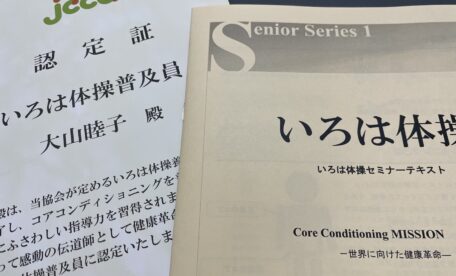 jcca
認定証
いろは体操普及員
大山睦子 殿
殿は、当協会が定めるいろは体操
了し、コアコンディショニングを
にふさわしい指導力を習得されま
って感動の伝道師として健康革命
体操普及員に認定いたしま
Senior Series 1
いろは体操
いろは体操セミナーテキスト
Core Conditioning MISSION
―世界に向けた健康革命―